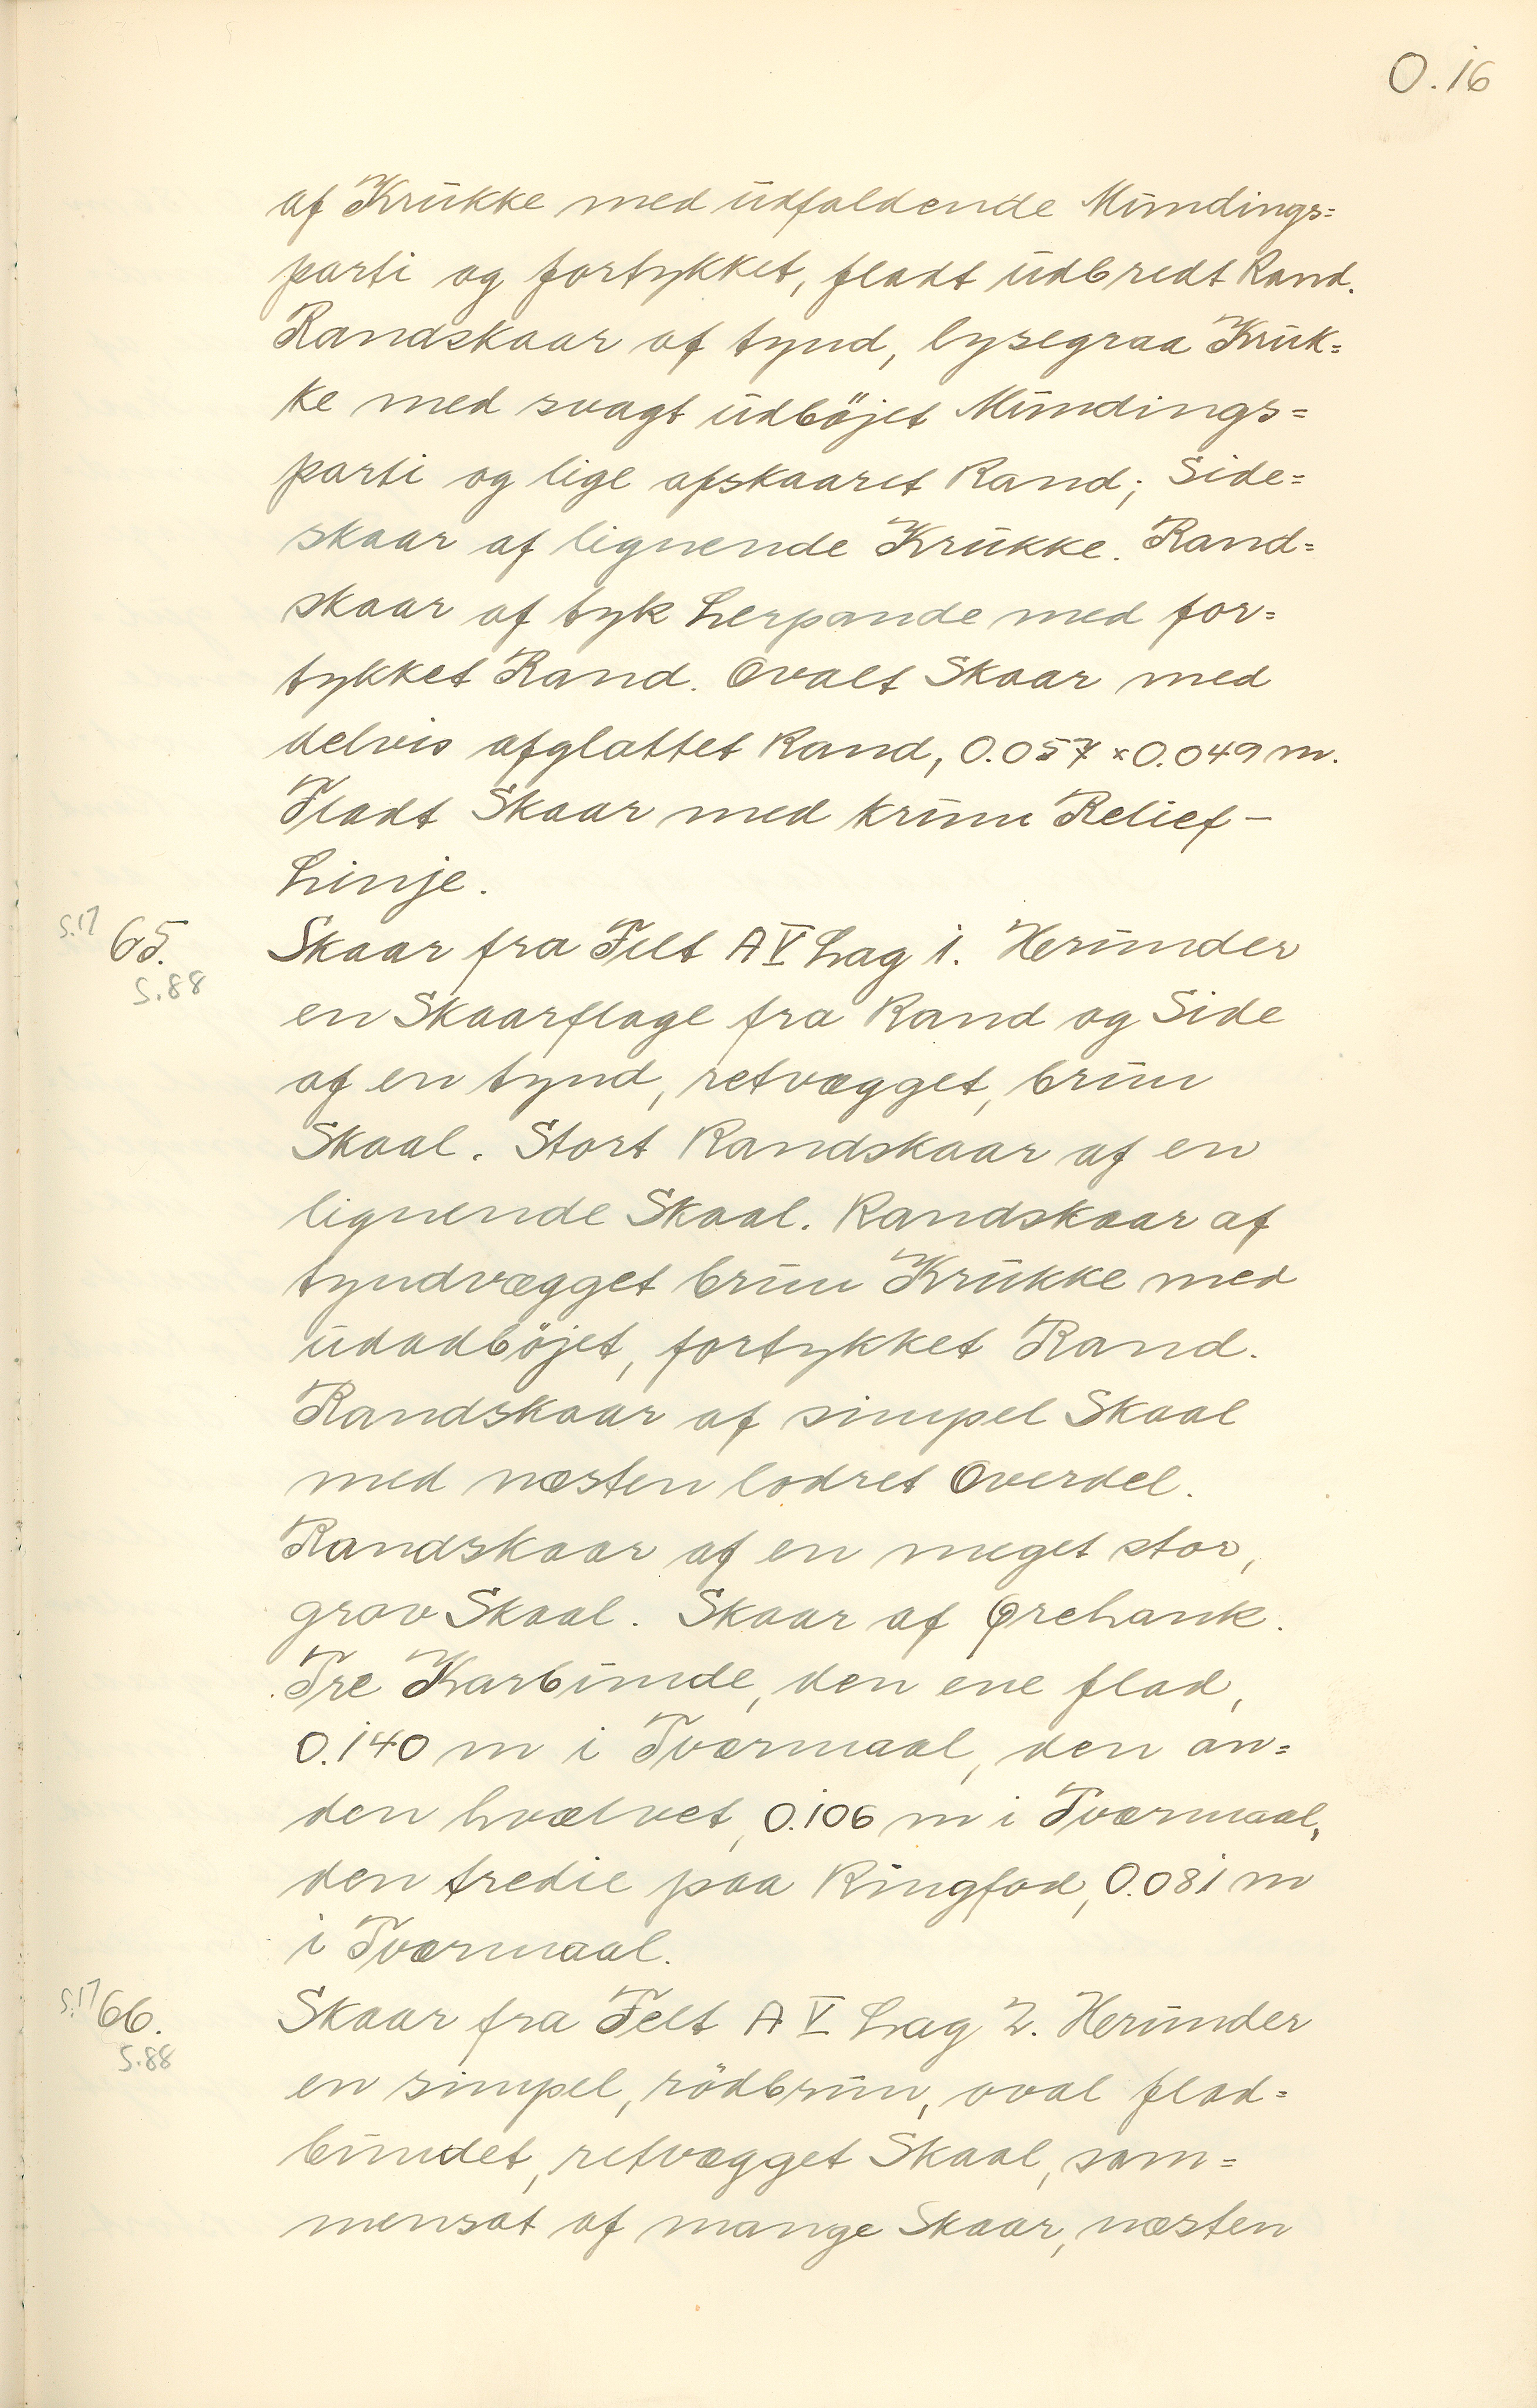 O.16
af Krukke med udfaldende Mundings=
parti og fortykket, fladt udbredt Rand.
Randskaar af tynd, lysegraa Kruk=
ke med svagt udböjet Mundings=
parti og lige afskaaret Rand; Side=
skaar af lignende Krukke. Rand=
skaar af tyk Lerpande med for=
tykket Rand. Ovalt Skaar med
delvis afglattet Rand, 0.057 × 0.049 m.
Fladt Skaar med krum Relief-
Linje.
S.17 65. Skaar fra Felt A V Lag 1. Herunder
S.88 en Skaarflage fra Rand og Side
af en tynd, retvægget, brun
Skaal. Stort Randskaar af en
lignende Skaal. Randskaar af
tyndvægget brun Krukke med
udadböjet, fortykket Rand.
Randskaar af simpel Skaal
med næsten lodret Overdel.
Randskaar af en meget stor,
grov Skaal. Skaar af Ørehank.
Tre Karbunde, den ene flad,
0.140 m i Tværmaal, den an=
den hvælvet, 0.106 m i Tværmaal,
den tredie paa Ringfod, 0.081 m
i Tværmaal.
S.17 66. Skaar fra Felt A V Lag 2. Herunder
S.88 en simpel, rödbrun, oval flad=
bundet, retvægget Skaal, sam=
mensat af mange Skaar, næsten